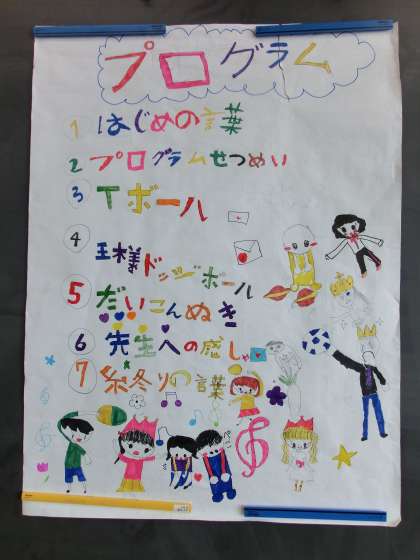 プログラム
1 はじめの言葉
2 プログラムせつめい
3 Tボール
4 王様ドッジボール
5 だいこんぬき
6 先生への感しゃ
7 終りの言葉